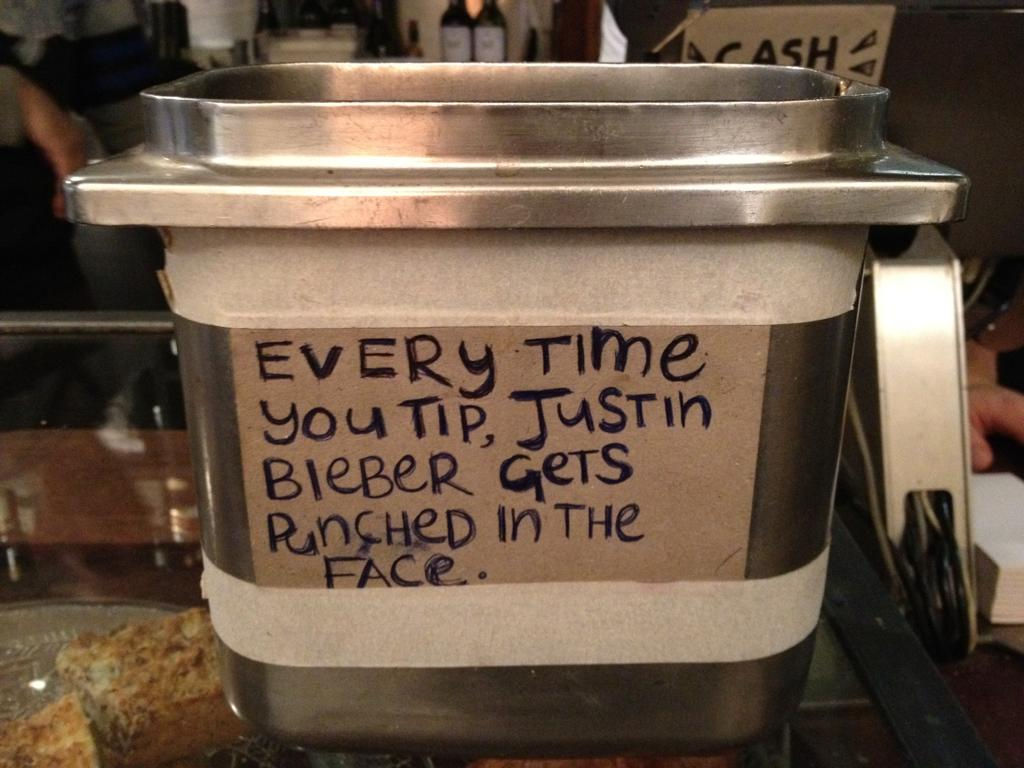 CASH
EVERY TIME
YOU TIP, JUSTIN
BIEBER GETS
PUNCHED IN THE
FACE.